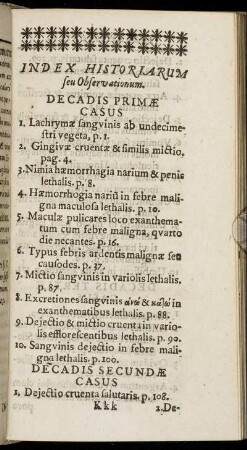 INDEX HISTORIARUM
seu Observationum.
DECADIS PRIMÆ
CASUS
1. Lachrymæ sangvinis ab undecime-
stri vegeta, p. 1.
2. Gingivæ cruentæ & similis mictio,
pag. 4.
3. Nimia hæmorrhagia narium & penis
lethalis. p. 8.
4. Hæmorrhogia nariū in febre mali-
gna maculosa lethalis. p. 10.
5. Maculæ pulicares loco exanthema-
tum cum febre maligna, qvarto
die necantes. p. 16.
6. Typus febris ardentis malignæ seu
causodes. p. 37.
7. Mictio sangvinis in variolis lethalis.
p. 87.
8. Excretiones sangvinis ἀνω & κάτω in
exanthematibus lethalis. p. 88.
9. Dejectio & mictio cruenta in vario-
lis efflorescentibus lethalis. p. 90.
10. Sangvinis dejectio in febre mali-
gna lethalis. p. 100.
DECADIS SECUNDÆ
CASUS
1. Dejectio cruenta salutaris. p. 108.
Kkk 2. De-